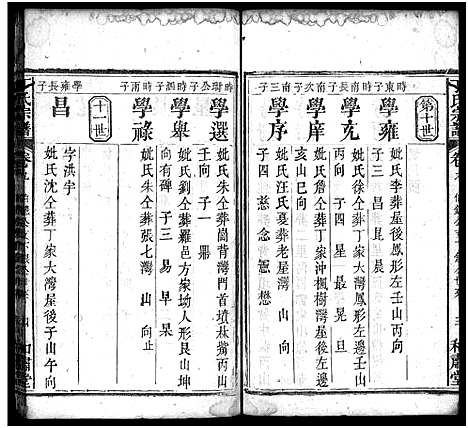 第十世
時東子
學雍
妣氏李葬屋後鳳形左壬山丙向
子三 昌 昆 晨
時南長子
學充
妣氏徐仝葬丁家大灣鳳形左壬山
丙向 子四 星 最 晃 旦
時南次子
學庠
妣氏詹仝葬丁家沖楓樹灣屋後
亥山巳向 子一 景
時南三子
學序
妣氏汪氏夏葬老屋灣 山 向
子四 慈 念 懋
和肅堂
時
公子
學選
妣氏朱仝葬
背灣門首墳林
丙山
壬向 子一 鼎
時泗子
學舉
妣氏劉仝葬羅邑方家坳人形艮山坤
向有碑 子三 易 早 杲
時雨子
學祿
妣氏朱仝葬張七灣 山 向
止
十一世
學雍長子
昌
字洪宇
妣氏沈仝葬丁家大灣屋後子山午向
氏宗譜
四
和肅堂